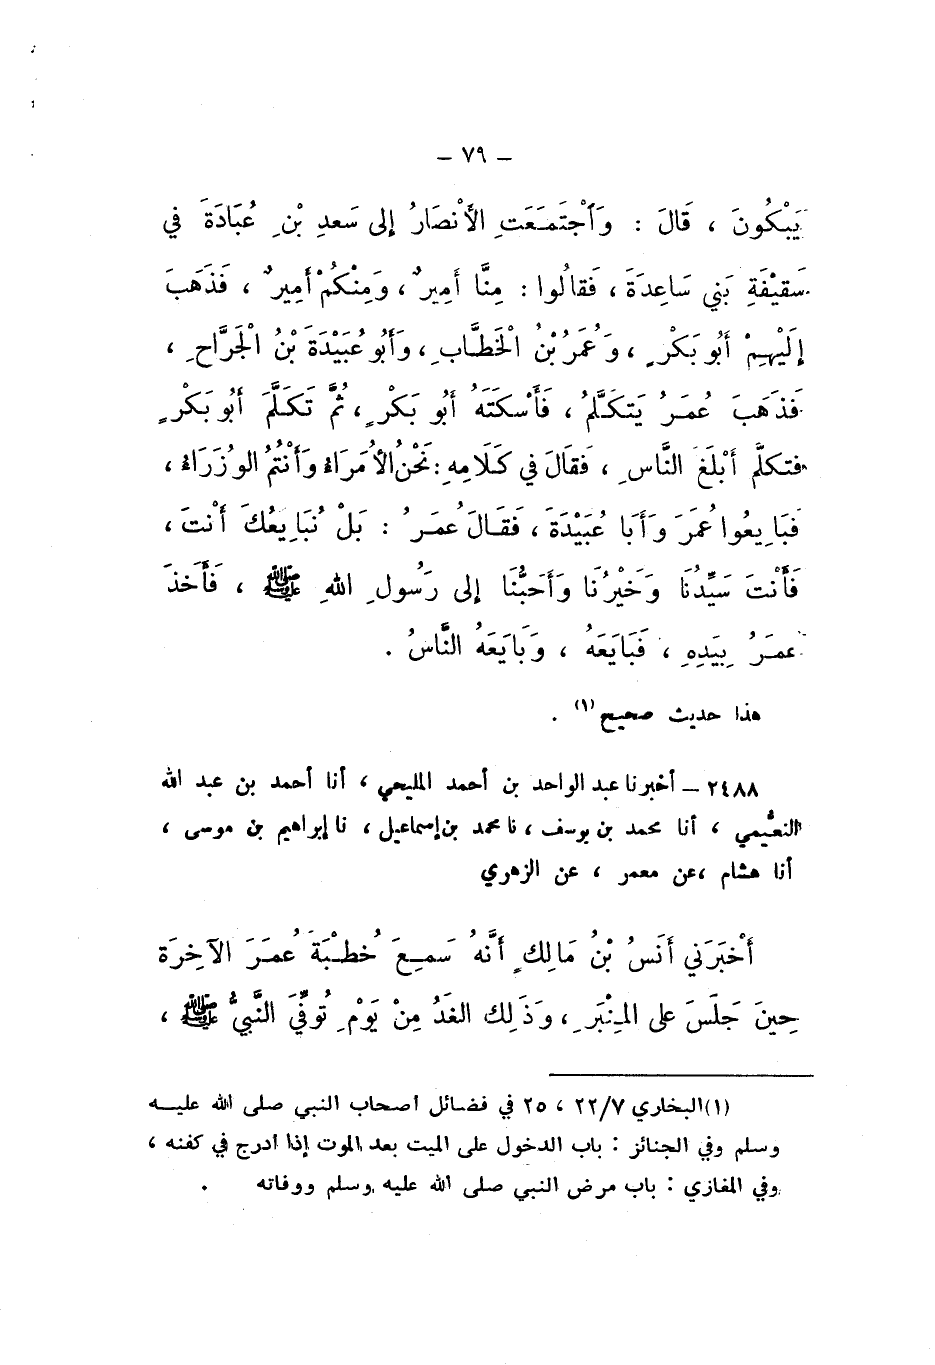 – ٧٩ –
يَبْكُونَ ، قَالَ : وَٱجْتَمَعَتِ الأَنْصَارُ إلى سَعدِ بْنِ عُبَادَةَ في
سَقيْفَةِ بَني سَاعِدَةَ ، فَقالُوا : مِنَّا أَمِيرٌ ، وَمِنْكُمْ أَمِيرٌ ، فَذَهَبَ
إلَيْهِمْ أَبُو بَكْرٍ ، وَعُمَرُ بْنُ الْخَطَّابِ ، وَأَبُو عُبَيْدَةَ بْنُ الْجَرَّاحِ ،
فَذَهَبَ عُمَرُ يَتَكَلَّمُ ، فَأَسْكَتَهُ أَبُو بَكْرٍ ، ثُمَّ تَكَلَّمَ أَبُو بَكْرٍ
فتكلَّم أَبْلَغَ النَّاسِ ، فَقالَ في كَلَامِهِ : نَحْنُ الأُمَرَاءُ وَأَنْتُمُ الوُزَرَاءُ ،
فَبَايِعُوا عُمَرَ وَأَبَا عُبَيْدَةَ ، فَقَالَ عُمَرُ : بَلْ نُبَايِعُكَ أَنْتَ ،
فَأَنْتَ سَيِّدُنَا وَخَيْرُنَا وَأَحَبُّنَا إلى رَسُولِ اللهِ ﷺ ، فَأَخَذَ
عمَرُ بِيَدِهِ ، فَبَايَعَهُ ، وَبَايَعَهُ النَّاسُ .
هذا حديث صحيح (١) .
٢٤٨٨ – أخبرنا عبد الواحد بن أحمد المليحي ، أنا أحمد بن عبد الله
النعيمي ، أنا محمد بن يوسف ، نا محمد بن إسماعيل ، نا إبراهيم بن موسى ،
أنا هشام ، عن معمر ، عن الزهري
أَخْبَرَني أَنَسُ بْنُ مَالِكٍ أَنَّهُ سَمِعَ خُطْبَةَ عُمَرَ الآخِرَةَ
حِينَ جَلَسَ على المِنْبَرِ ، وَذَلِكَ الغَدُ مِنْ يَوْمِ تُوفِّيَ النَّبيُّ ﷺ ،
(١) البخاري ٢٢/٧ ، ٢٥ في فضائل أصحاب النبي صلى الله عليه
وسلم وفي الجنائز : باب الدخول على الميت بعد الموت إذا أدرج في كفنه ،
وفي المغازي : باب مرض النبي صلى الله عليه وسلم ووفاته .